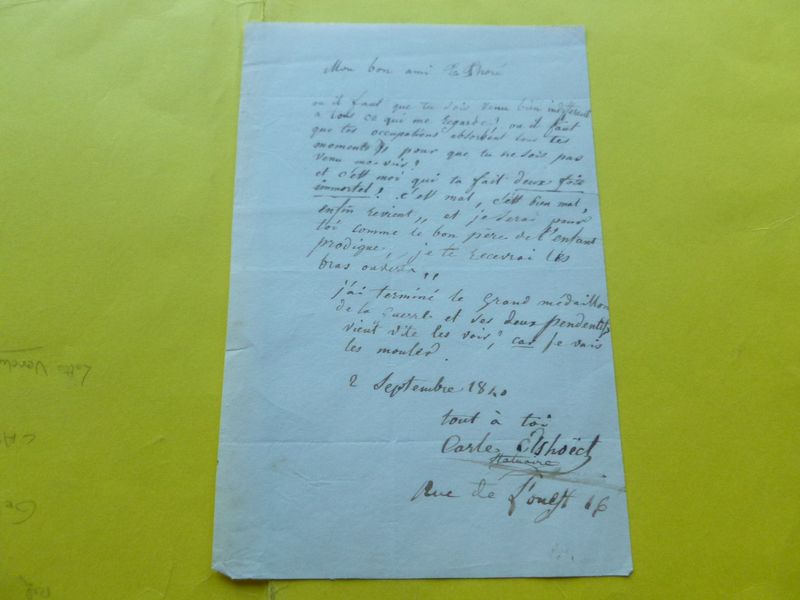 Mon bon ami E Thoré
ou il faut que tu sois venu bien indifferent
a tous ce qui me regarde! ou il faut
que tes occupations absorbent tous tes
moments pour que tu ne sois pas
venu me vois?
et c'est moi qui ta fait deux fois
immortel? c'est mal, c'est bien mal,
enfin revient,, et je serai pour
toi comme le bon père de l'enfant
prodigue, je te recevrai les
bras ouverts,,
j'ai terminé le grand médaillon
de la guerre et ses deux pendentifs
vient vite les vois, car je vais
les mouler.
2 Septembre 1840
tout à toi
Carle Elshoëct
statuaire
Rue de L'ouest 16